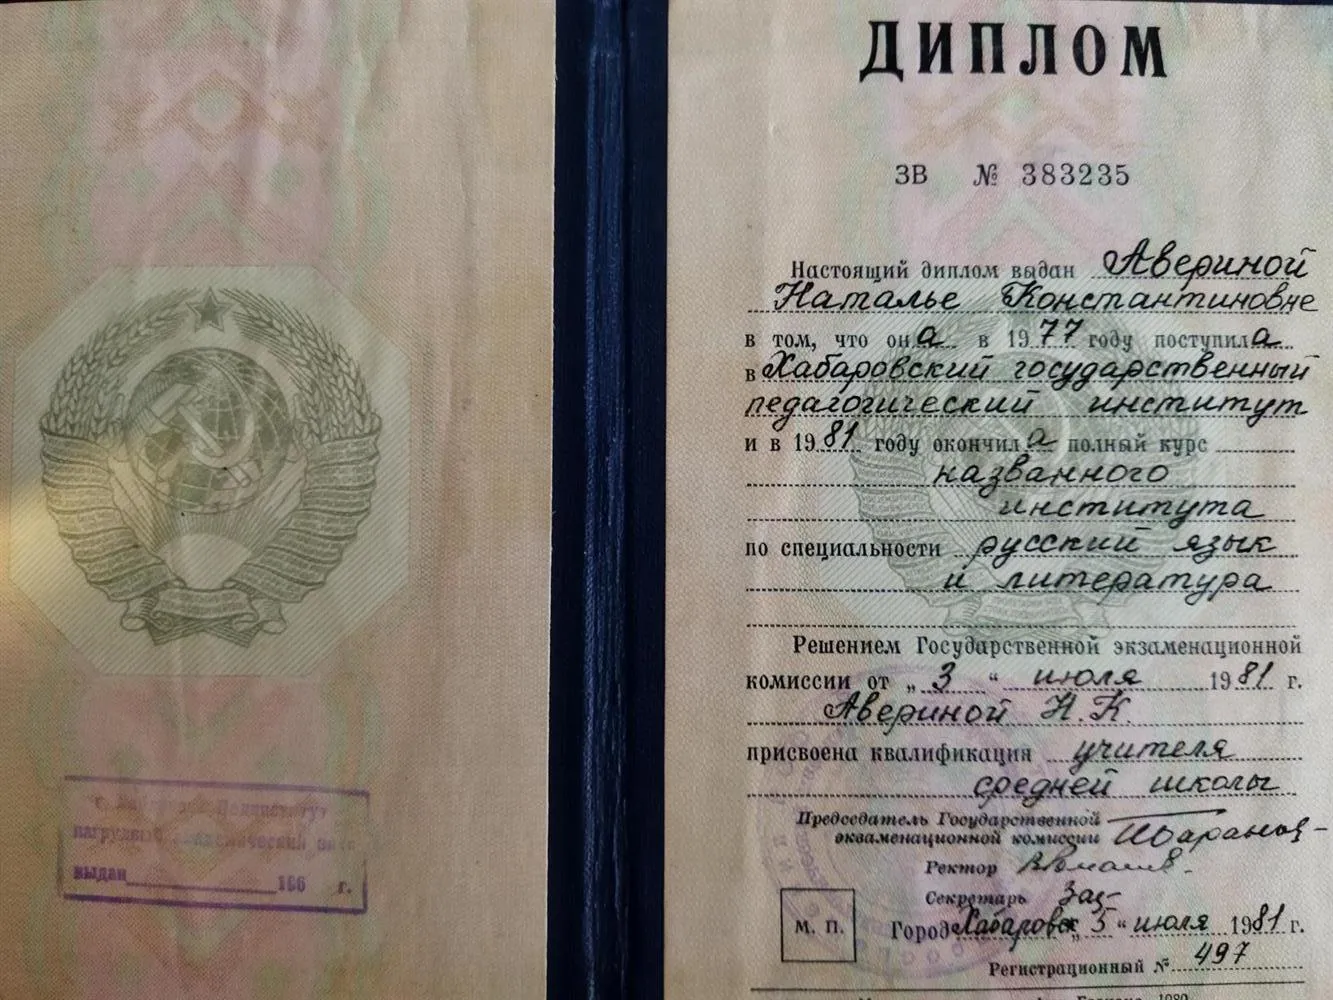 г. Хабаровск Пединститут
нагрудный академический знак
выдан 196 г.
ДИПЛОМ
ЗВ № 383235
Настоящий диплом выдан Авериной
Наталье Константиновне
в том, что она в 1977 году поступила
в Хабаровский государственный
педагогический институт
и в 1981 году окончила полный курс
названного
института
по специальности русский язык
и литература
Решением Государственной экзаменационной
комиссии от „3“ июля 1981 г.
Авериной Н.К.
присвоена квалификация учителя
средней школы
Председатель Государственной
экзаменационной комиссии
Ректор
Секретарь
М. П.
Город Хабаровск „5“ июля 1981 г.
Регистрационный № 497